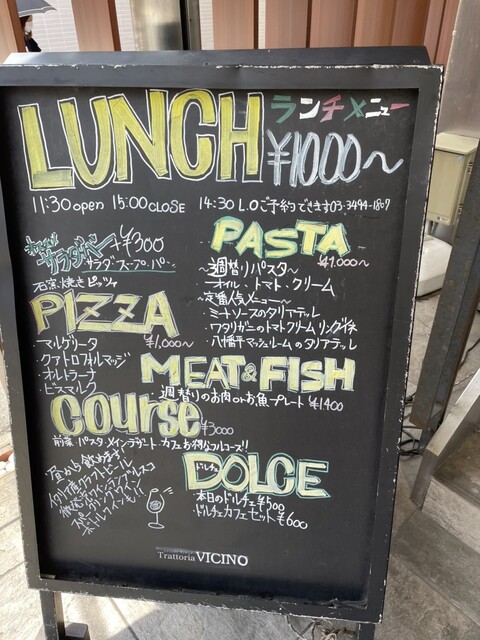 LUNCH ランチメニュー
¥1000〜
11:30 open 15:00 CLOSE 14:30 L.O ご予約できます 03-3494-1807
サラダバー +¥300
サラダ・スープ・バー
石窯焼きピッツァ
PIZZA
¥1,000〜
マルゲリータ
・クアトロフォルマッジ
・オルトラーナ
・ビスマルク
PASTA
¥1,000〜
〜週替りパスタ〜
ーオイル・トマト・クリーム
定番人気メニュー〜
・ミートソースのタリアテッレ
・ワタリガニのトマトクリームリングイネ
・八幡平マッシュルームのタリアテッレ
MEAT & FISH
週替りのお肉orお魚プレート ¥1400
course
¥3000
前菜・パスタ・メイン・デザート・カフェ お得なフルコース!!
昼から飲めます!
イタリア産クラフトビール
スパークリングワイン
ドルチェ
DOLCE
本日のドルチェ ¥500
・ドルチェカフェセット ¥600
Trattoria VICINO